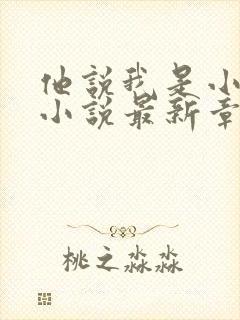 他說我是小
小說最新章
桃之淼淼